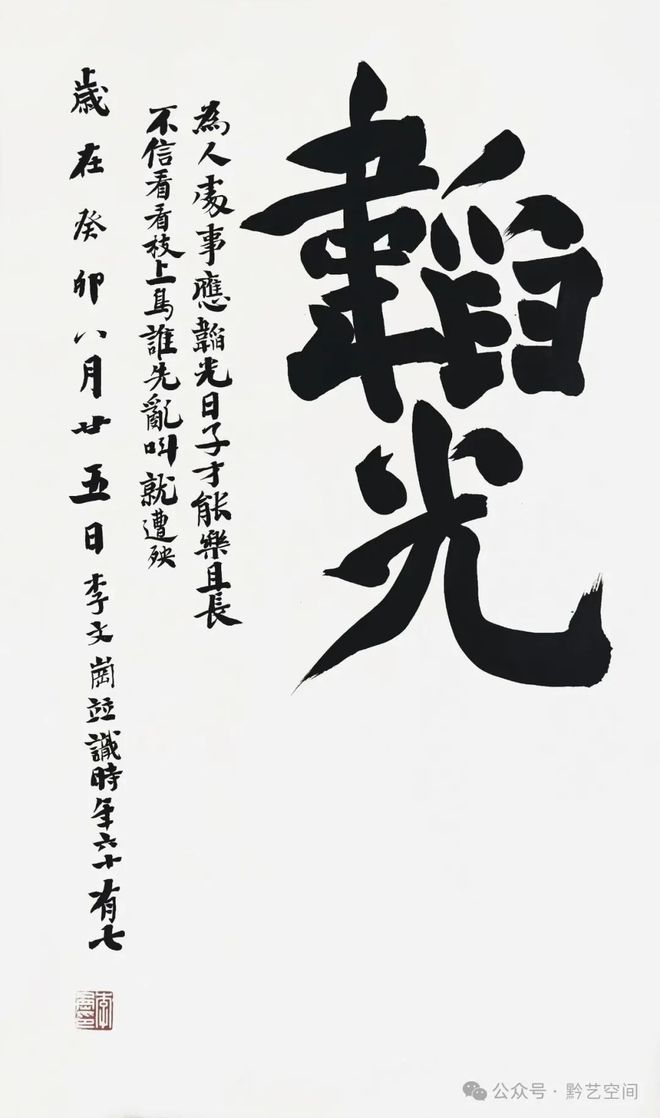 韜光
為人處事應韜光日子才能樂且長
不信看看枝上鳥誰先亂叫就遭殃
歲在癸卯八月廿五日李文崗並識時年六十有七
公众号·黔艺空间